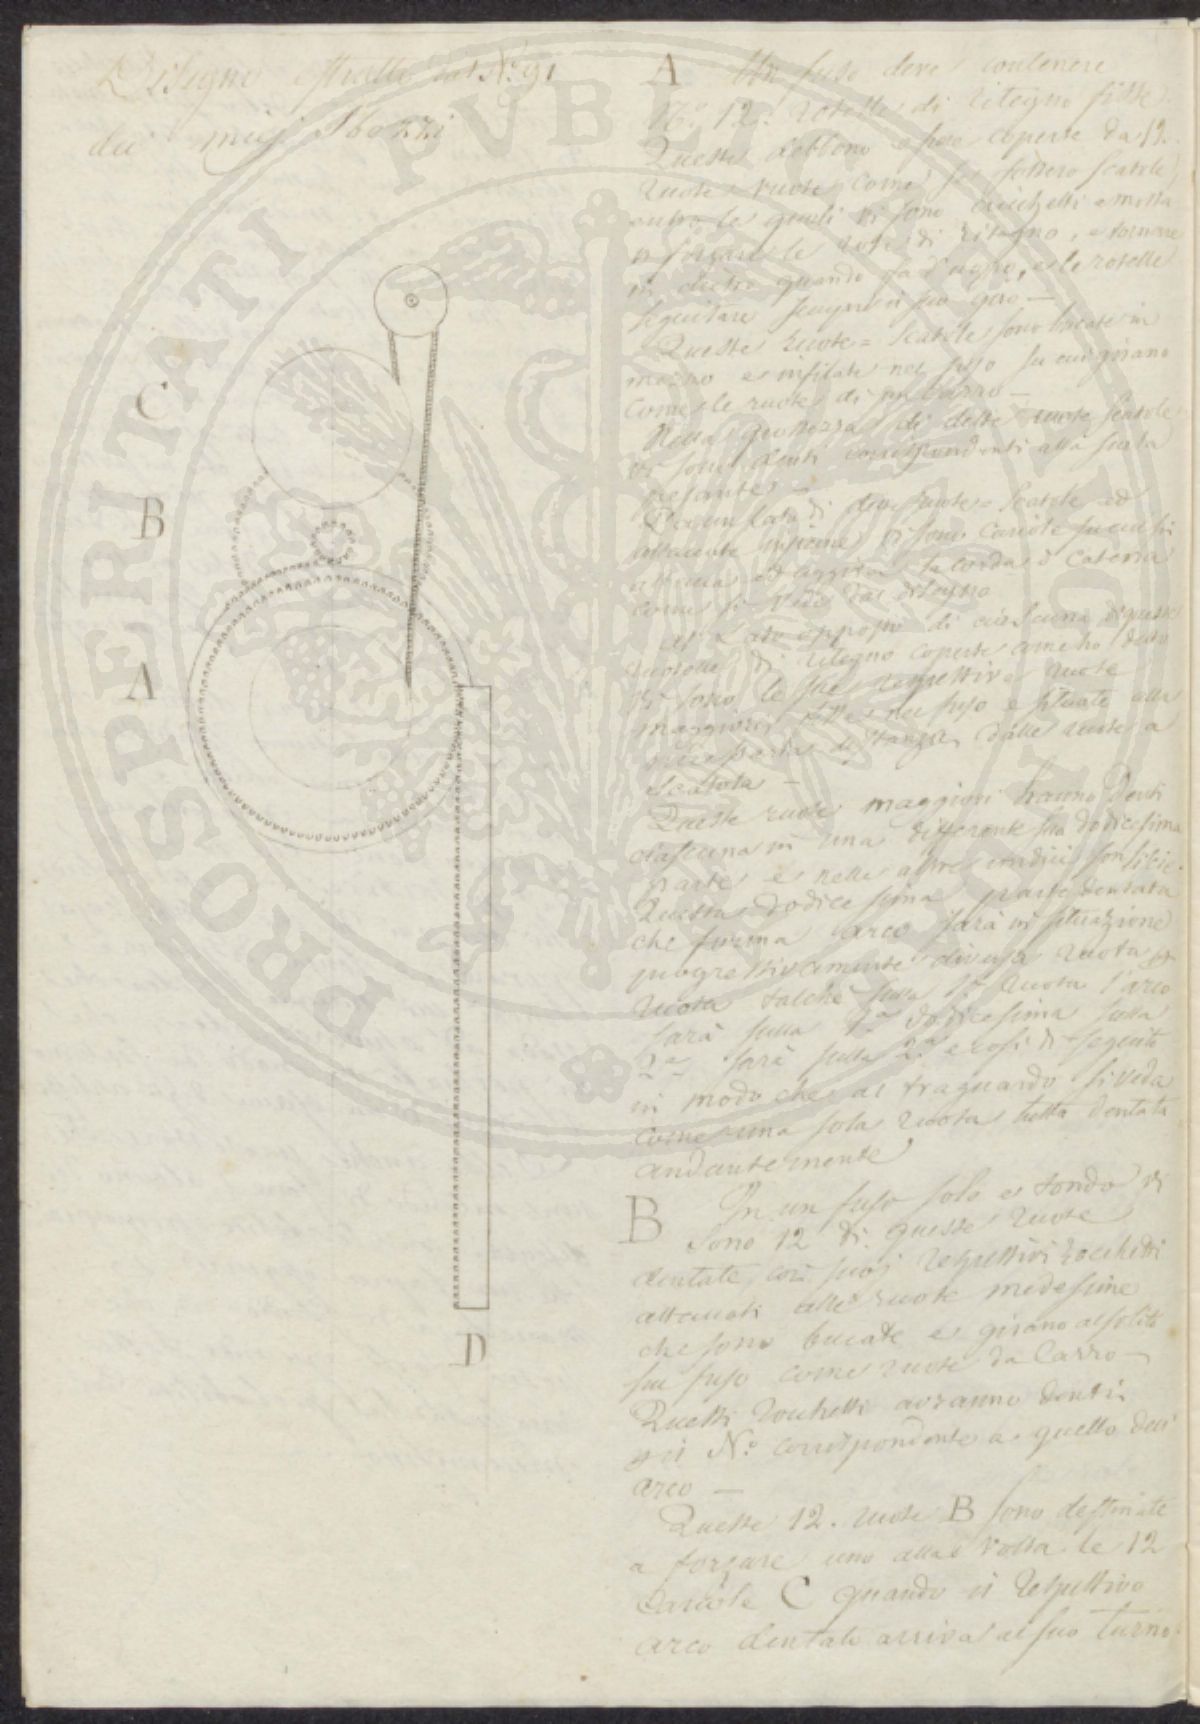 Disegno estratto dal N.º 91
dei miei Sbozzi
C
B
A
D
A Un fuso deve contenere
N.º 12. rotelle di ritegno fisse.
Queste debbono esser coperte da 12.
ruote vuote come se fossero scatole
entro le quali vi sono cricchetti e molla
p forzare le ruote di ritegno, e tornare
in dietro quando fa d'uopo, e le rotelle
seguitare sempre il suo giro —
Queste ruote = scatole sono bucate in
mezzo e infilate nel fuso su cui girano
come le ruote di un carro —
Nella grossezza di dette ruote scatole
vi sono denti corrispondenti alla
pesante
Da un lato di dette ruote = scatole ed
attaccate insieme vi sono carrole su cui si
attacca ed aggira la corda o catena
come si vede dal disegno
Al lato opposto di ciascuna di queste
ruotelle di ritegno coperte come ho detto
vi sono le sue respettive ruote
maggiori fisse nel fuso e situate alla
distanza dalle ruote a
scatola —
Queste ruote maggiori hanno denti
ciascuna in una differente sua dodicesima
parte e nelle altre undici son liscie.
Questa dodicesima parte dentata
che forma arco sarà in situazione
progressivamente diversa ruota p
ruota talchè sulla 1ª ruota l'arco
sarà sulla 1ª dodicesima sulla
2ª sarà sulla 2ª e così di seguito
in modo che al traguardo si veda
come una sola ruota tutta dentata
andantemente
B In un fuso solo e tondo vi
sono 12 di queste ruote
dentate, coi suoi respettivi rocchetti
attaccati alle ruote medesime
che sono bucate e girano al solito
sul fuso come ruote da Carro —
Questi rocchetti avranno denti
p il N.º corrispondente a quello dell'
arco —
Queste 12. ruote B sono destinate
a forzare uno alla volta le 12
Carrole C quando il respettivo
arco dentato arriva al suo turno
PUBLICAE
PROSPERITATI